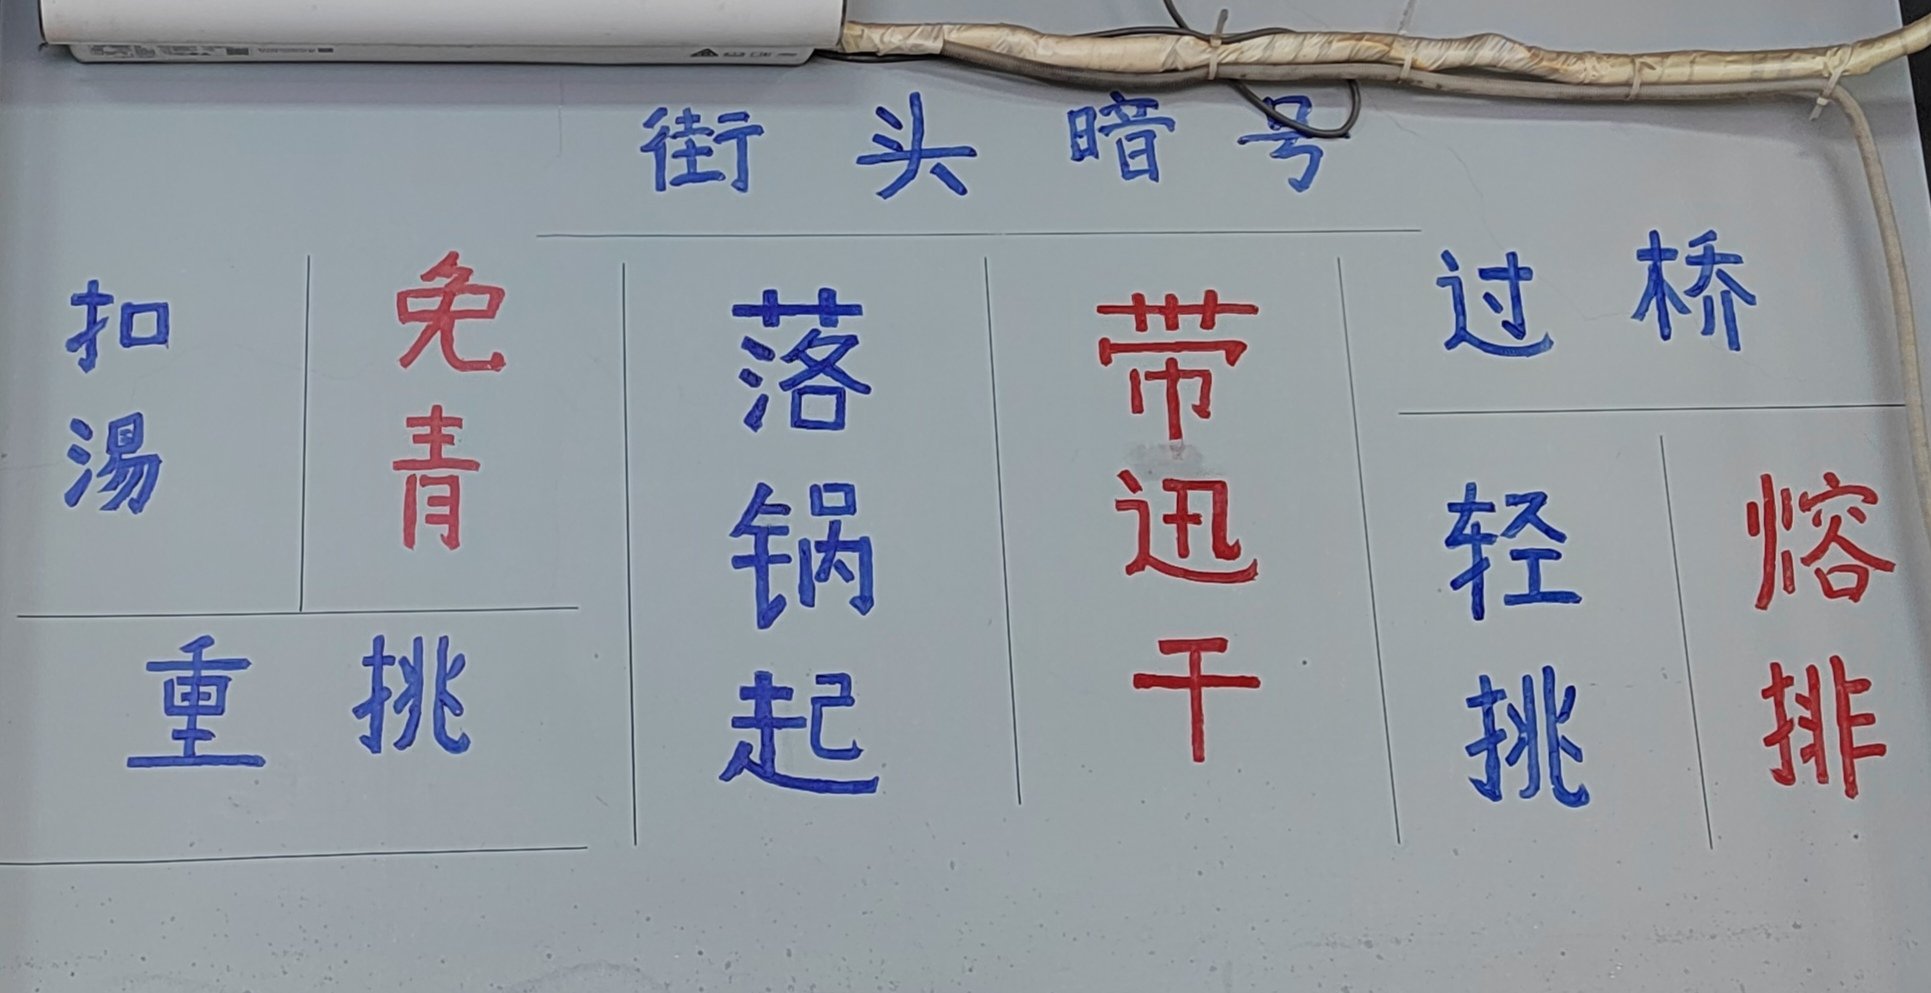 街头暗号
扣湯
免青
重挑
落锅起
带迅干
过桥
轻挑
熔排